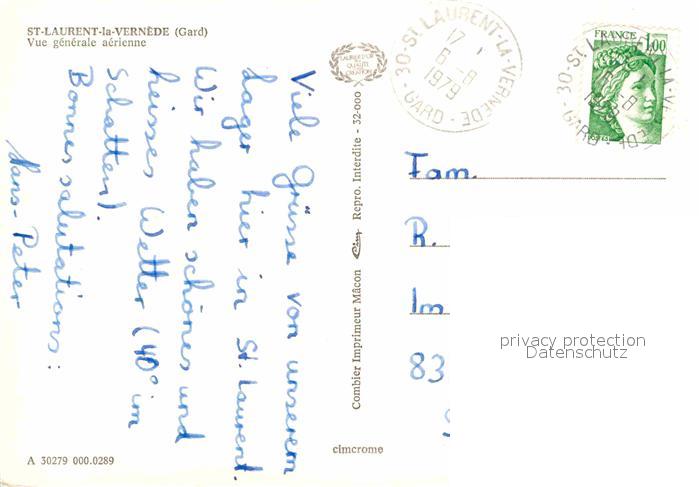 ST-LAURENT-la-VERNÈDE (Gard)
Vue générale aérienne
Viele Grüsse von unserem
Lager hier in St. Laurent.
Wir haben schönes und
heisses Wetter (40° im
Schatten)
Bonnes salutations:
Hans-Peter
A 30279 000.0289
LAURÉAT D'OR
QUALITÉ
CRÉATION
Combier Imprimeur Mâcon Cim Repro. Interdite - 32-000
cimcrome
30-ST-LAURENT-LA-VERNEDE
17
6-8
1979
GARD
FRANCE
1,00
30-ST-LAURENT-LA-VERNEDE
6-8
1979
GARD
Fam.
R.
Im
83
privacy protection
Datenschutz